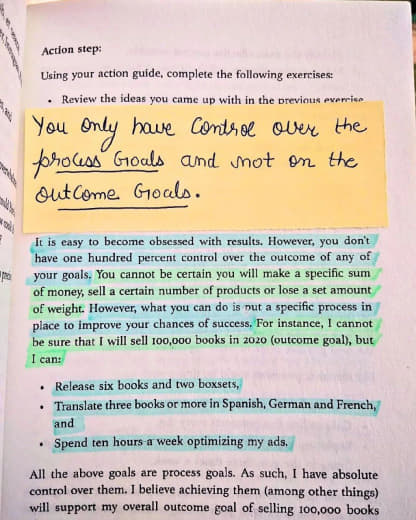 Action step:
Using your action guide, complete the following exercises:
• Review the ideas you came up with in the previous exercise
You only have control over the
process Goals and not on the
outcome Goals.
It is easy to become obsessed with results. However, you don't
have one hundred percent control over the outcome of any of
your goals. You cannot be certain you will make a specific sum
of money, sell a certain number of products or lose a set amount
of weight. However, what you can do is put a specific process in
place to improve your chances of success. For instance, I cannot
be sure that I will sell 100,000 books in 2020 (outcome goal), but
I can:
• Release six books and two boxsets,
• Translate three books or more in Spanish, German and French,
and
• Spend ten hours a week optimizing my ads.
All the above goals are process goals. As such, I have absolute
control over them. I believe achieving them (among other things)
will support my overall outcome goal of selling 100,000 books